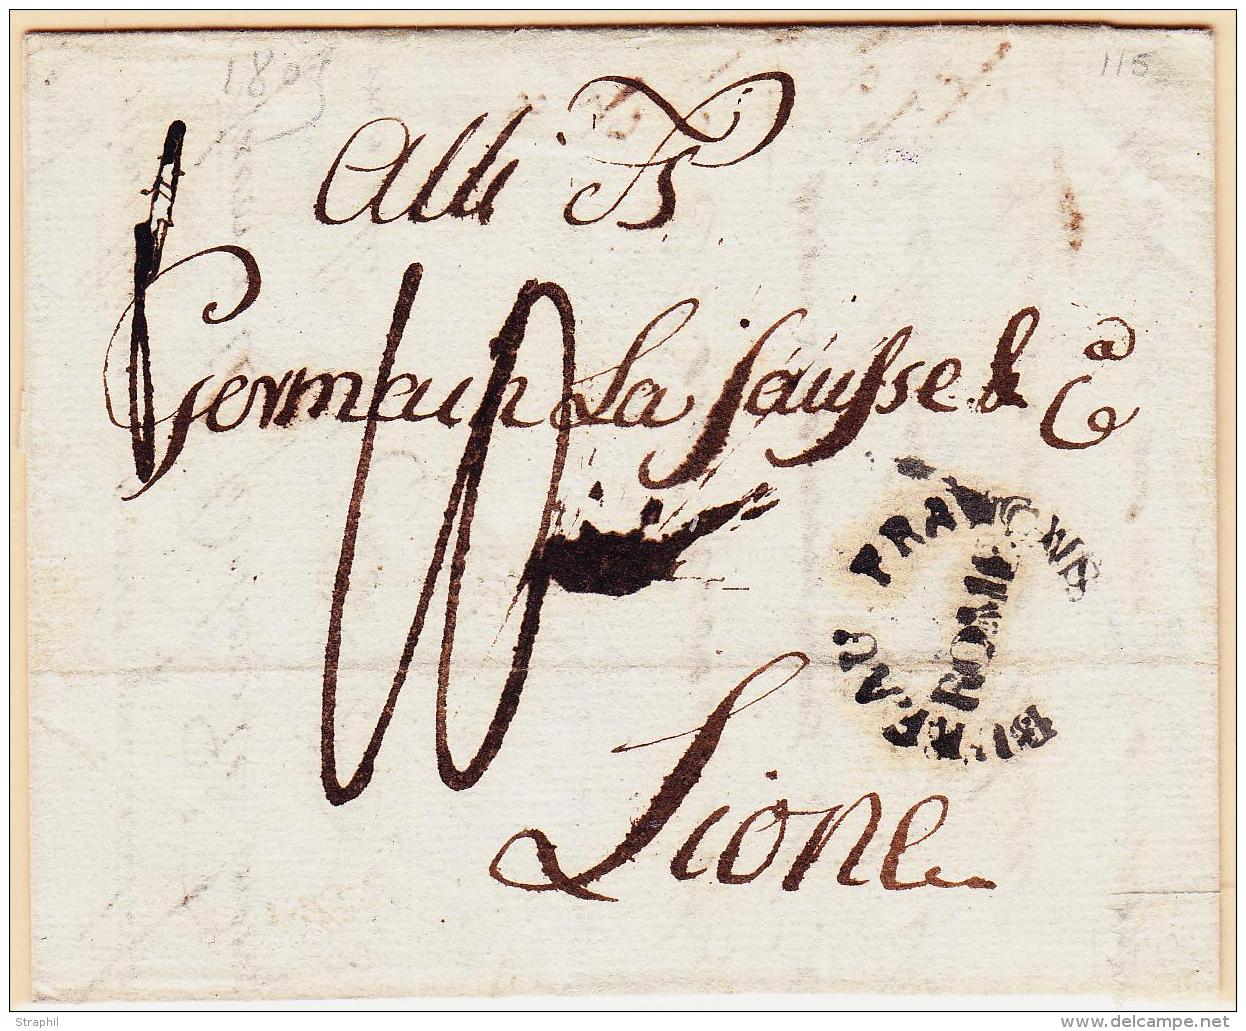 1803
115
Alli Ss
Germain La Sausse & Ca
BUREAU FRANCOIS
ROME
Lione
Straphil
delcampe.net